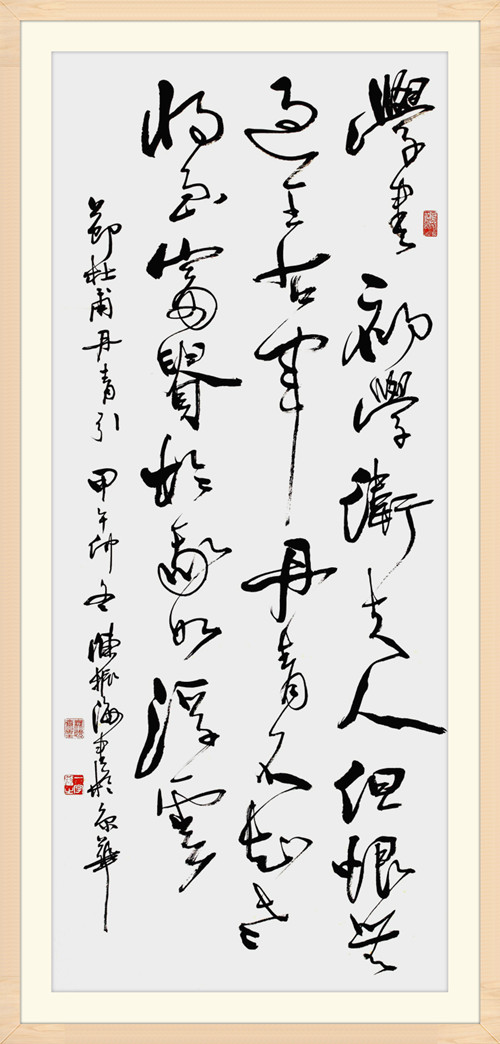 學書初學衛夫人但恨無
過王右軍丹青不知老
將至富貴於我如浮雲
節杜甫丹青引 甲午仲冬 陳振海書於京華